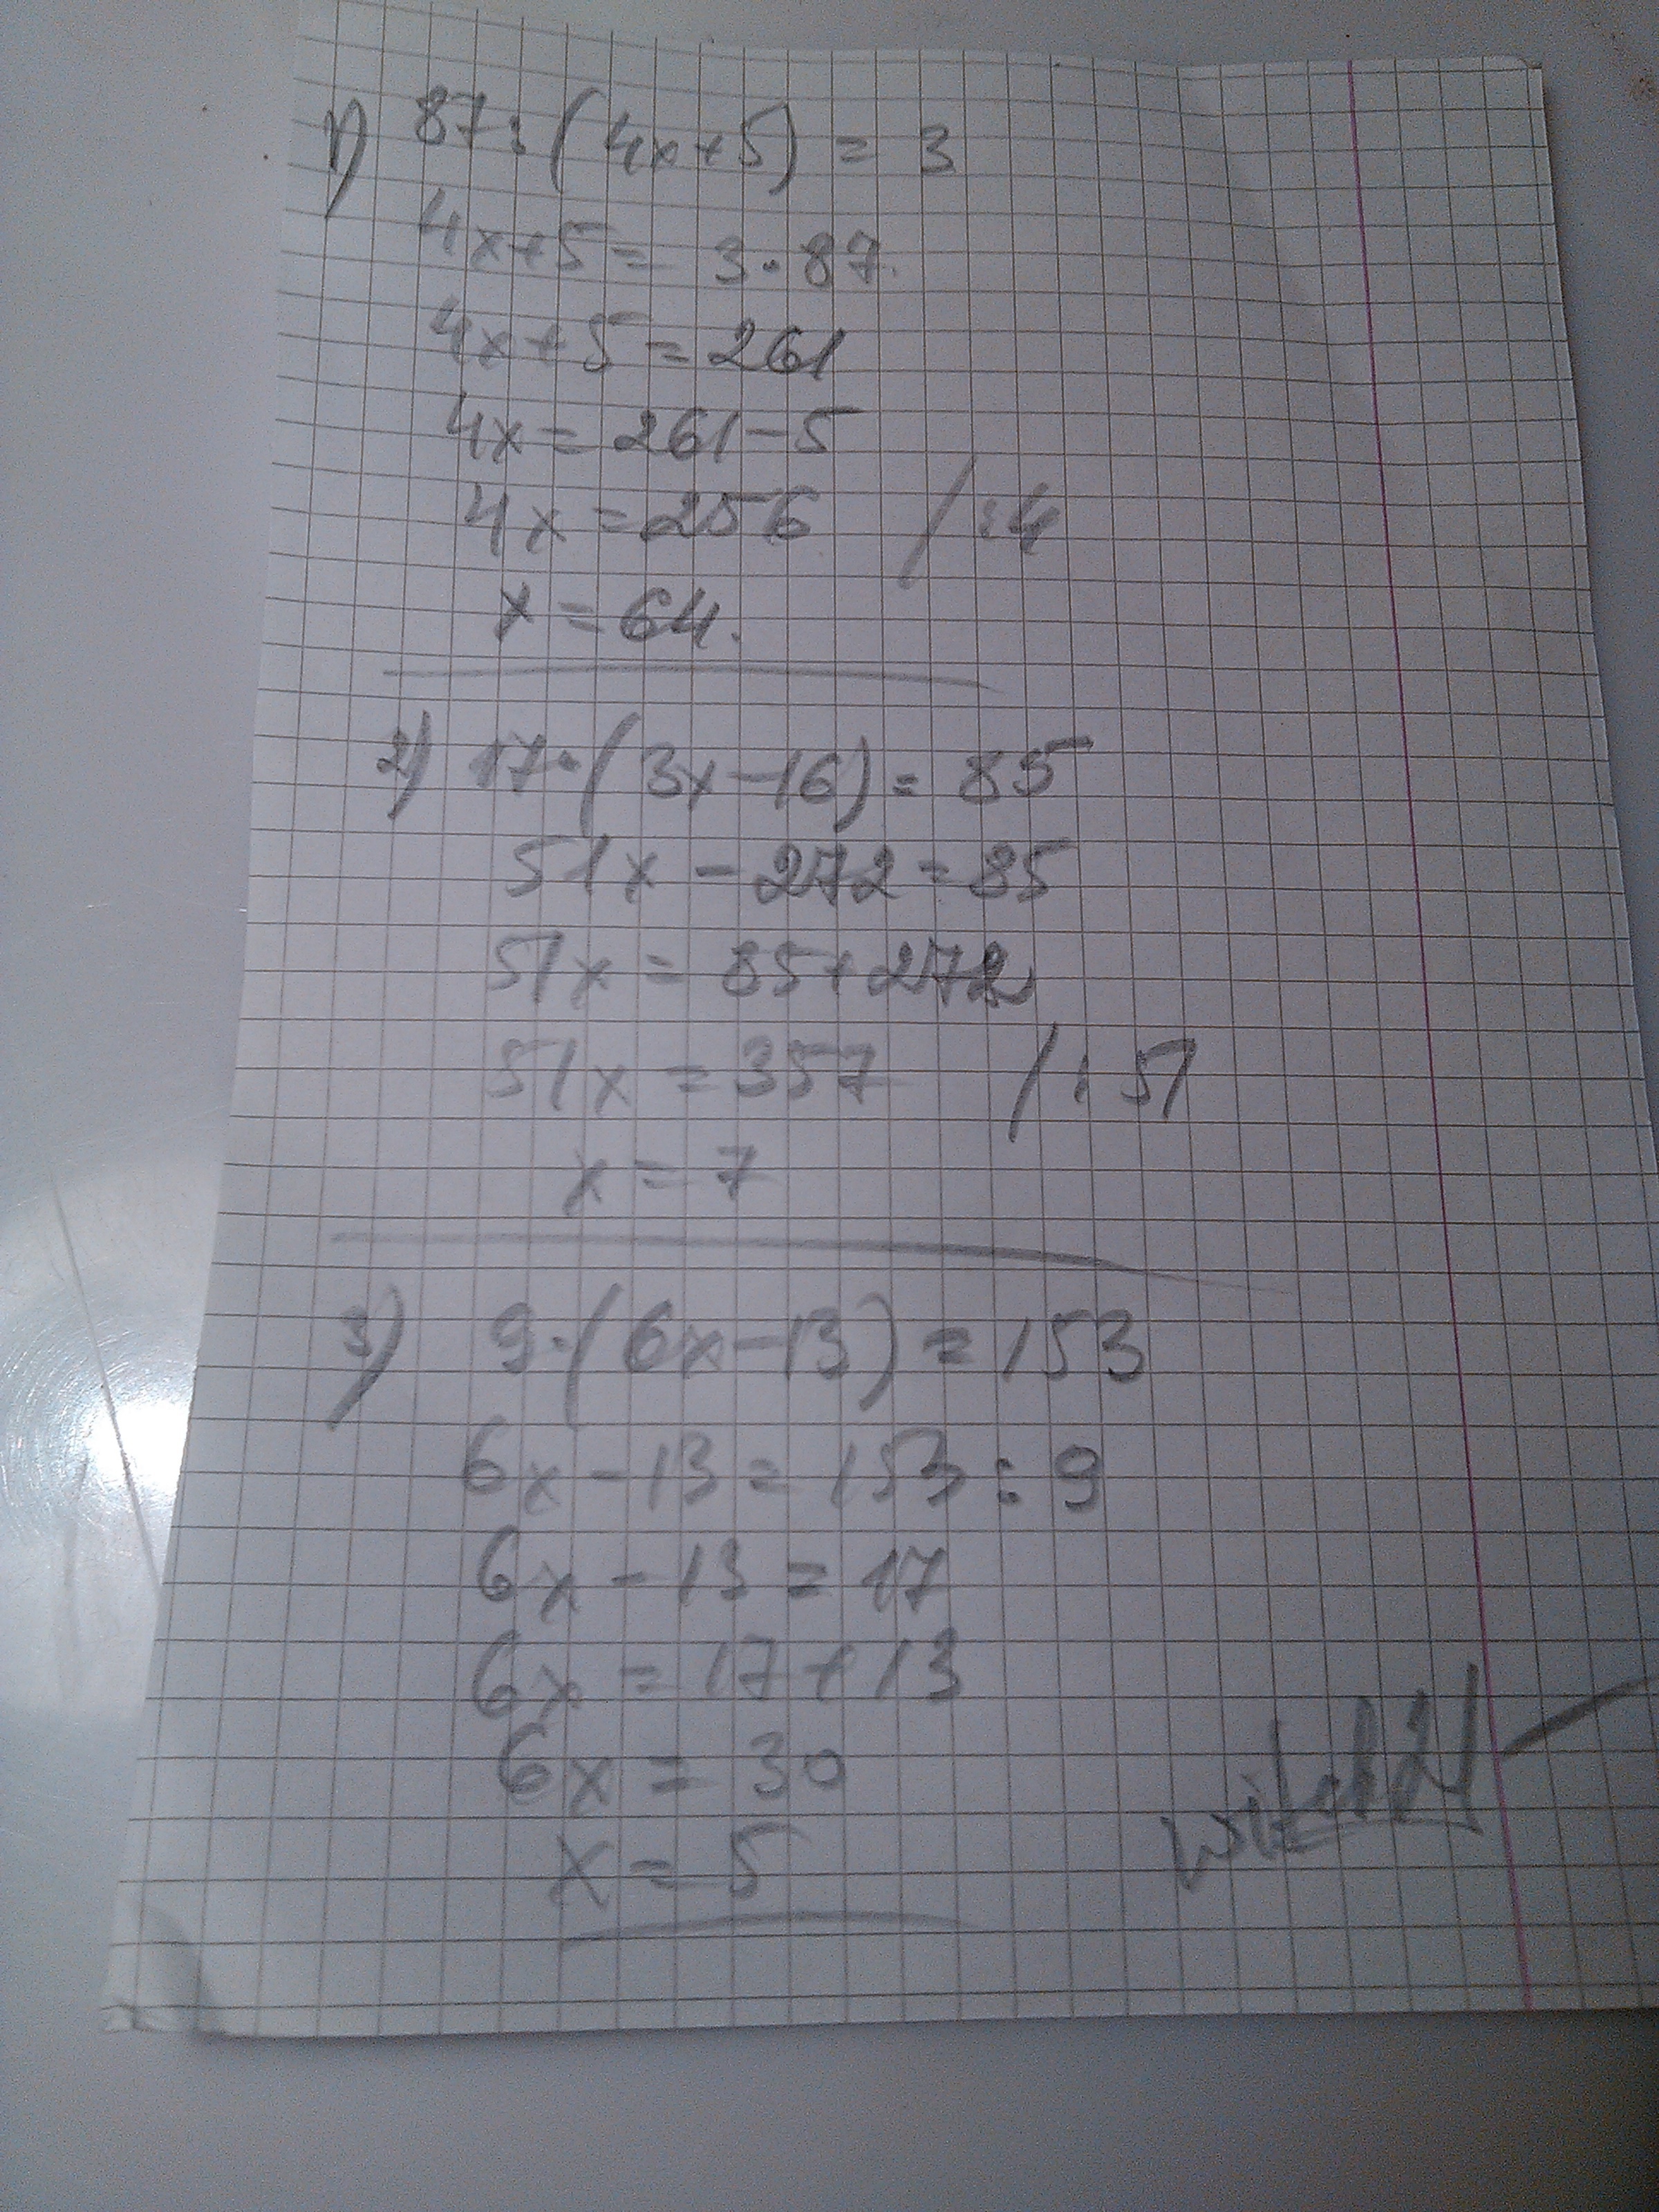 1) 87:(4x+5) = 3
4x+5 = 3·87
4x+5 = 261
4x = 261-5
4x = 256 /:4
x = 64.
2) 17·(3x-16) = 85
51x - 272 = 85
51x = 85+272
51x = 357 /:51
x = 7
3) 9·(6x-13) = 153
6x - 13 = 153 : 9
6x - 13 = 17
6x = 17+13
6x = 30
x = 5
witch21